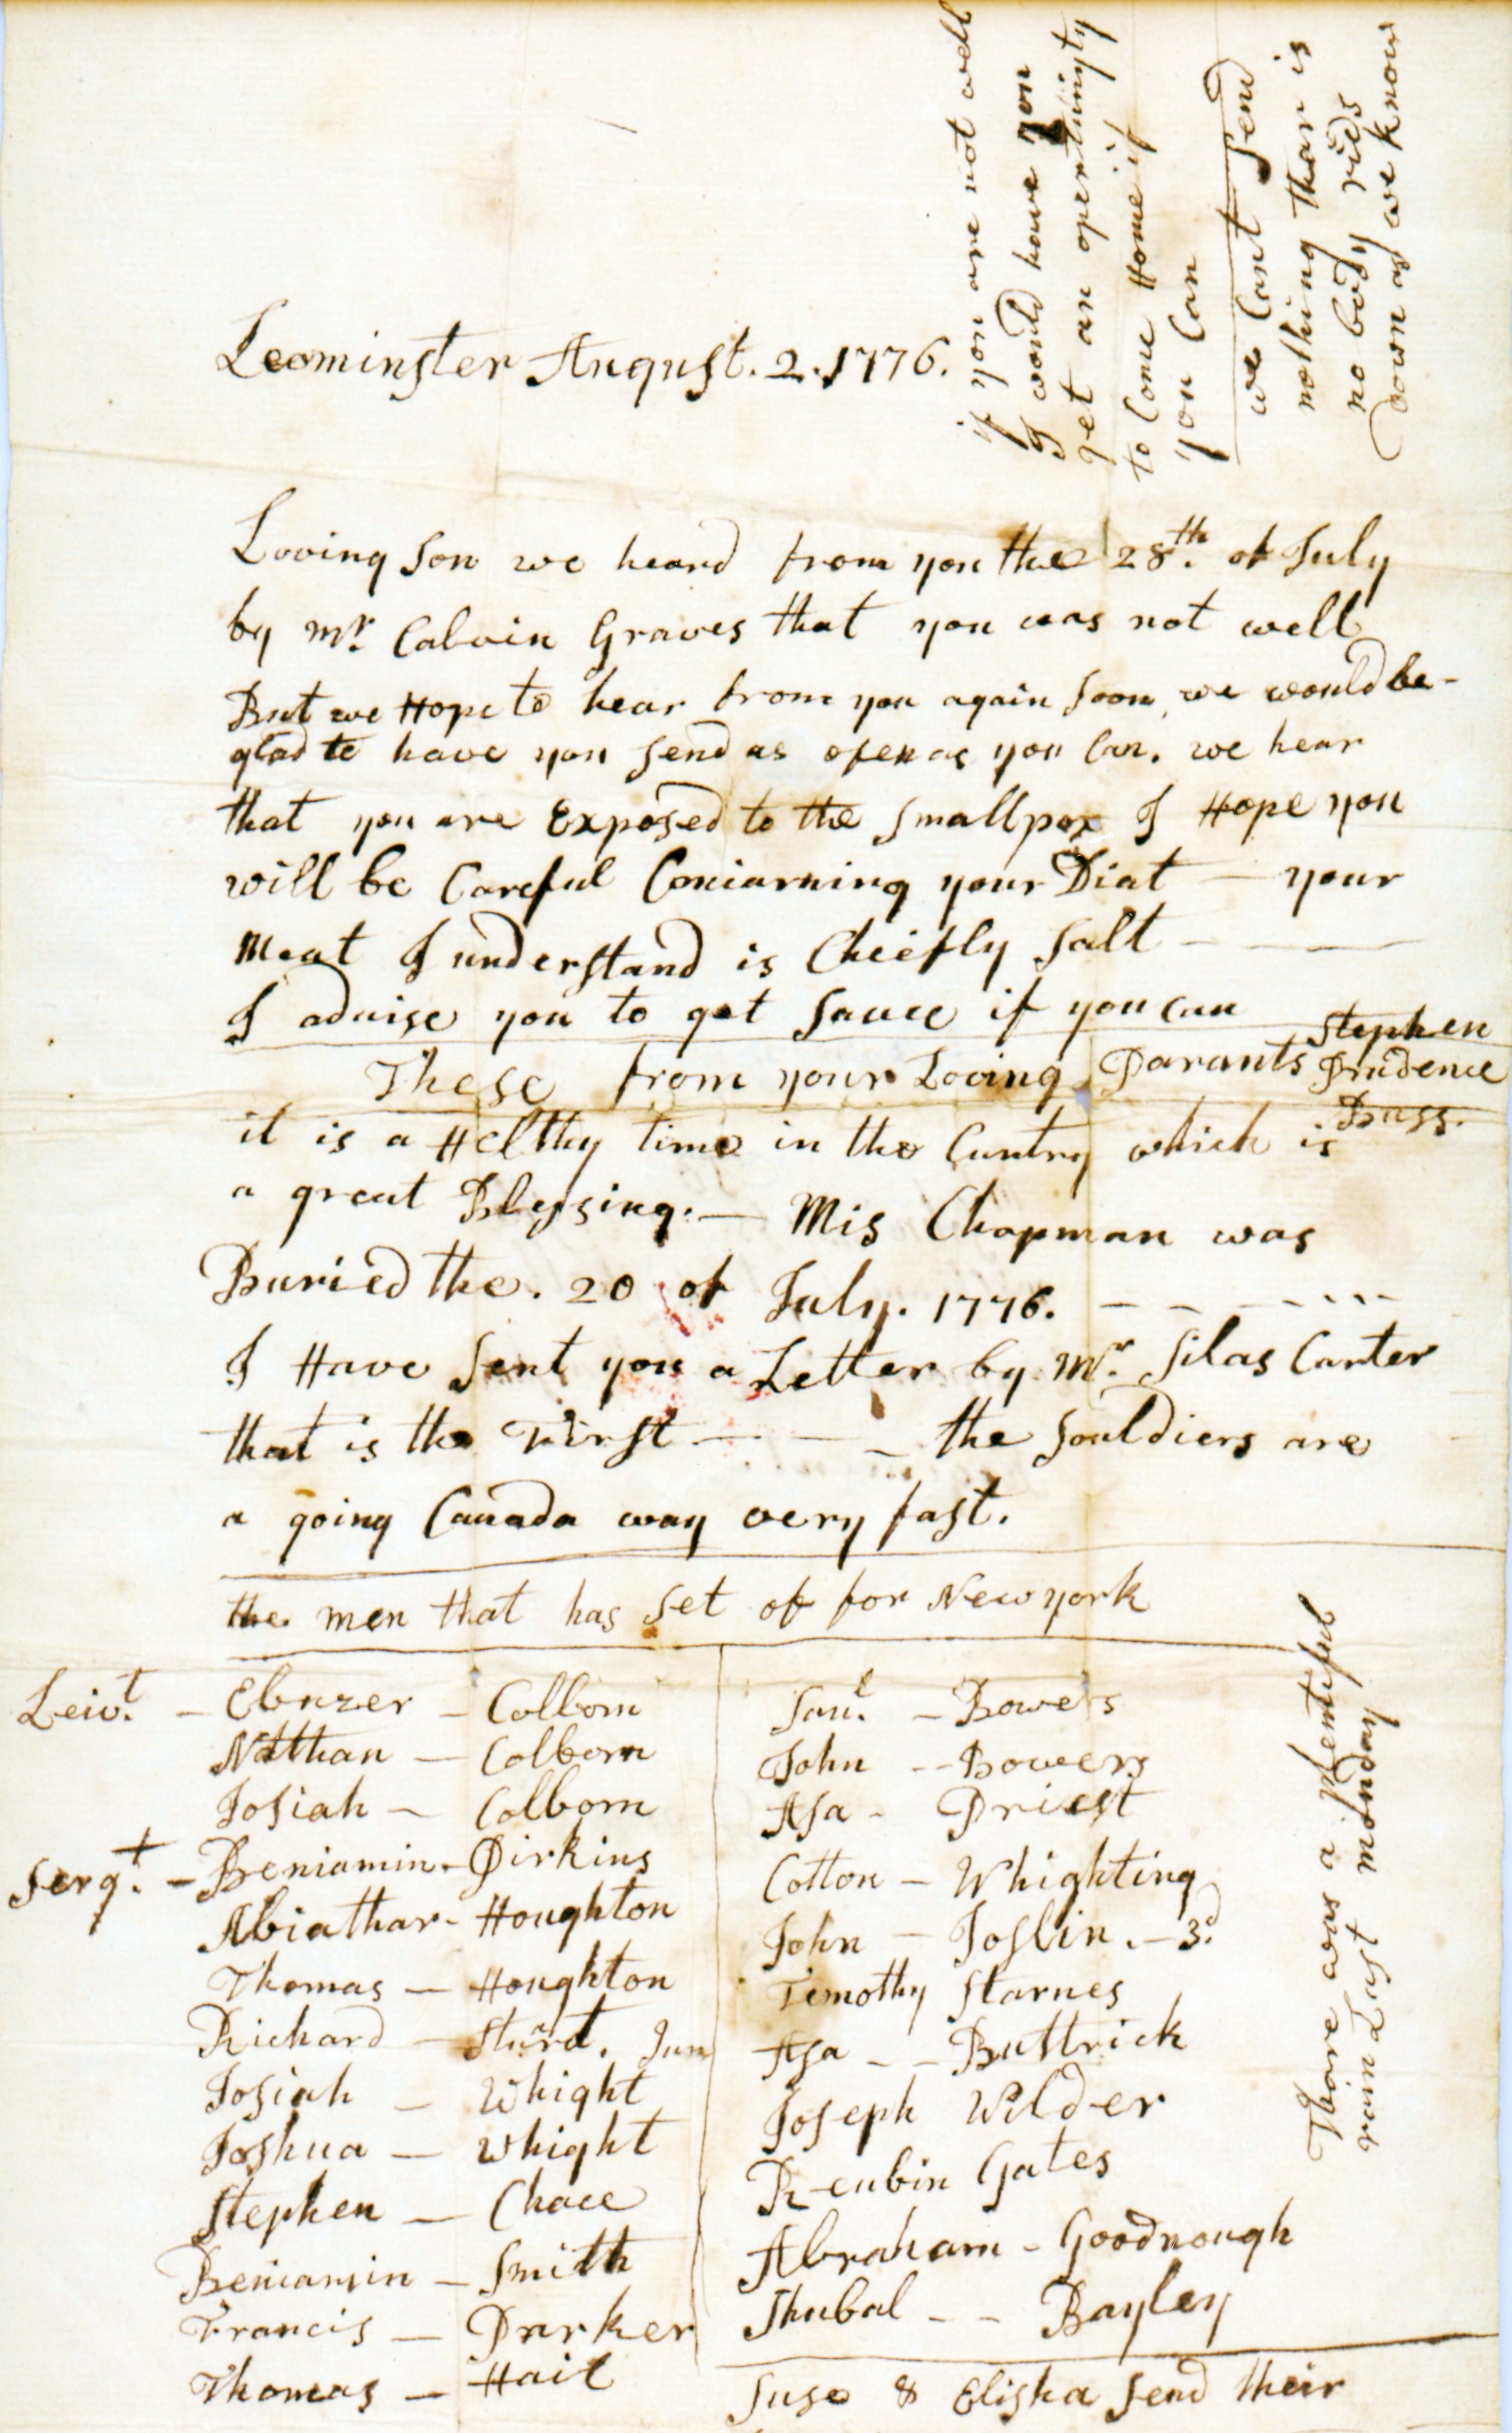 Leominster August. 2. 1776.
if you are not well
I would have you
get an opertunity
to Come Home if
you Can
we Cant Send
nothing thar is
no body rids
down as we know
Loving Son we heard from you the 28th. of July
by Mr. Calvin Graves that you was not well
But we Hope to hear from you again Soon, we would be-
glad to have you Send as ofen as you Can. we hear
that you are Exposed to the Smallpox I Hope you
will be Careful Conciarning your Diat — your
Meat I understand is Cheifly Salt — —
I advise you to get Sauce if you can
These from your Loving Parants Stephen
Prudence
Buss.
it is a Helthy time in the Cuntry which is
a great Blessing. — Mis Chapman was
Buried the. 20 of July. 1776. - - - - - -
I Have Sent you a Letter by Mr. Silas Carter
that is the First — — — the Souldiers are
a going Canada way very fast.
the men that has Set of for New york
Leiut. — Ebnezer — Colborn
Nathan — Colborn
Josiah — Colborn
Sergt. — Beniamin - Pirkins
Abiathar - Houghton
Thomas — Houghton
Richard — Jun
Josiah — Whight
Joshua — Whight
Stephen — Chace
Beniamin — Smith
Francis — Parker
Thomas — Hail
Saml. — Bowers
John -- Bowers
Asa - Priest
Cotton — Whighting
John — Joslin. — 3d
Timothy Starnes
Asa -- Buttrick
Joseph Wilder
Reubin Gates
Abraham - Goodnough
Shubal -- Bayley
Thare was a plentiful
rain Last monday
Suse & Elisha Send their